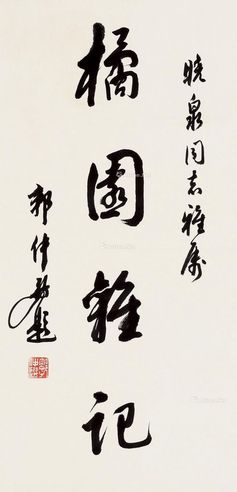 晓泉同志雅属
橘園雜记
郭仲選題